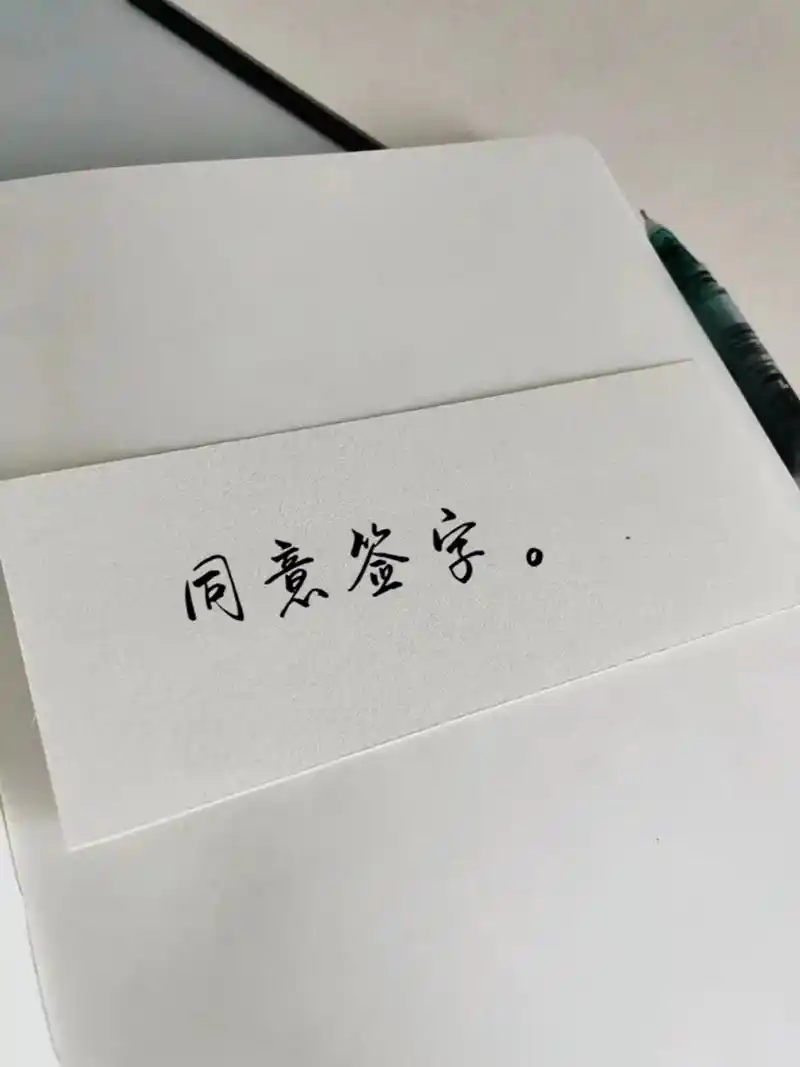 同意签字。